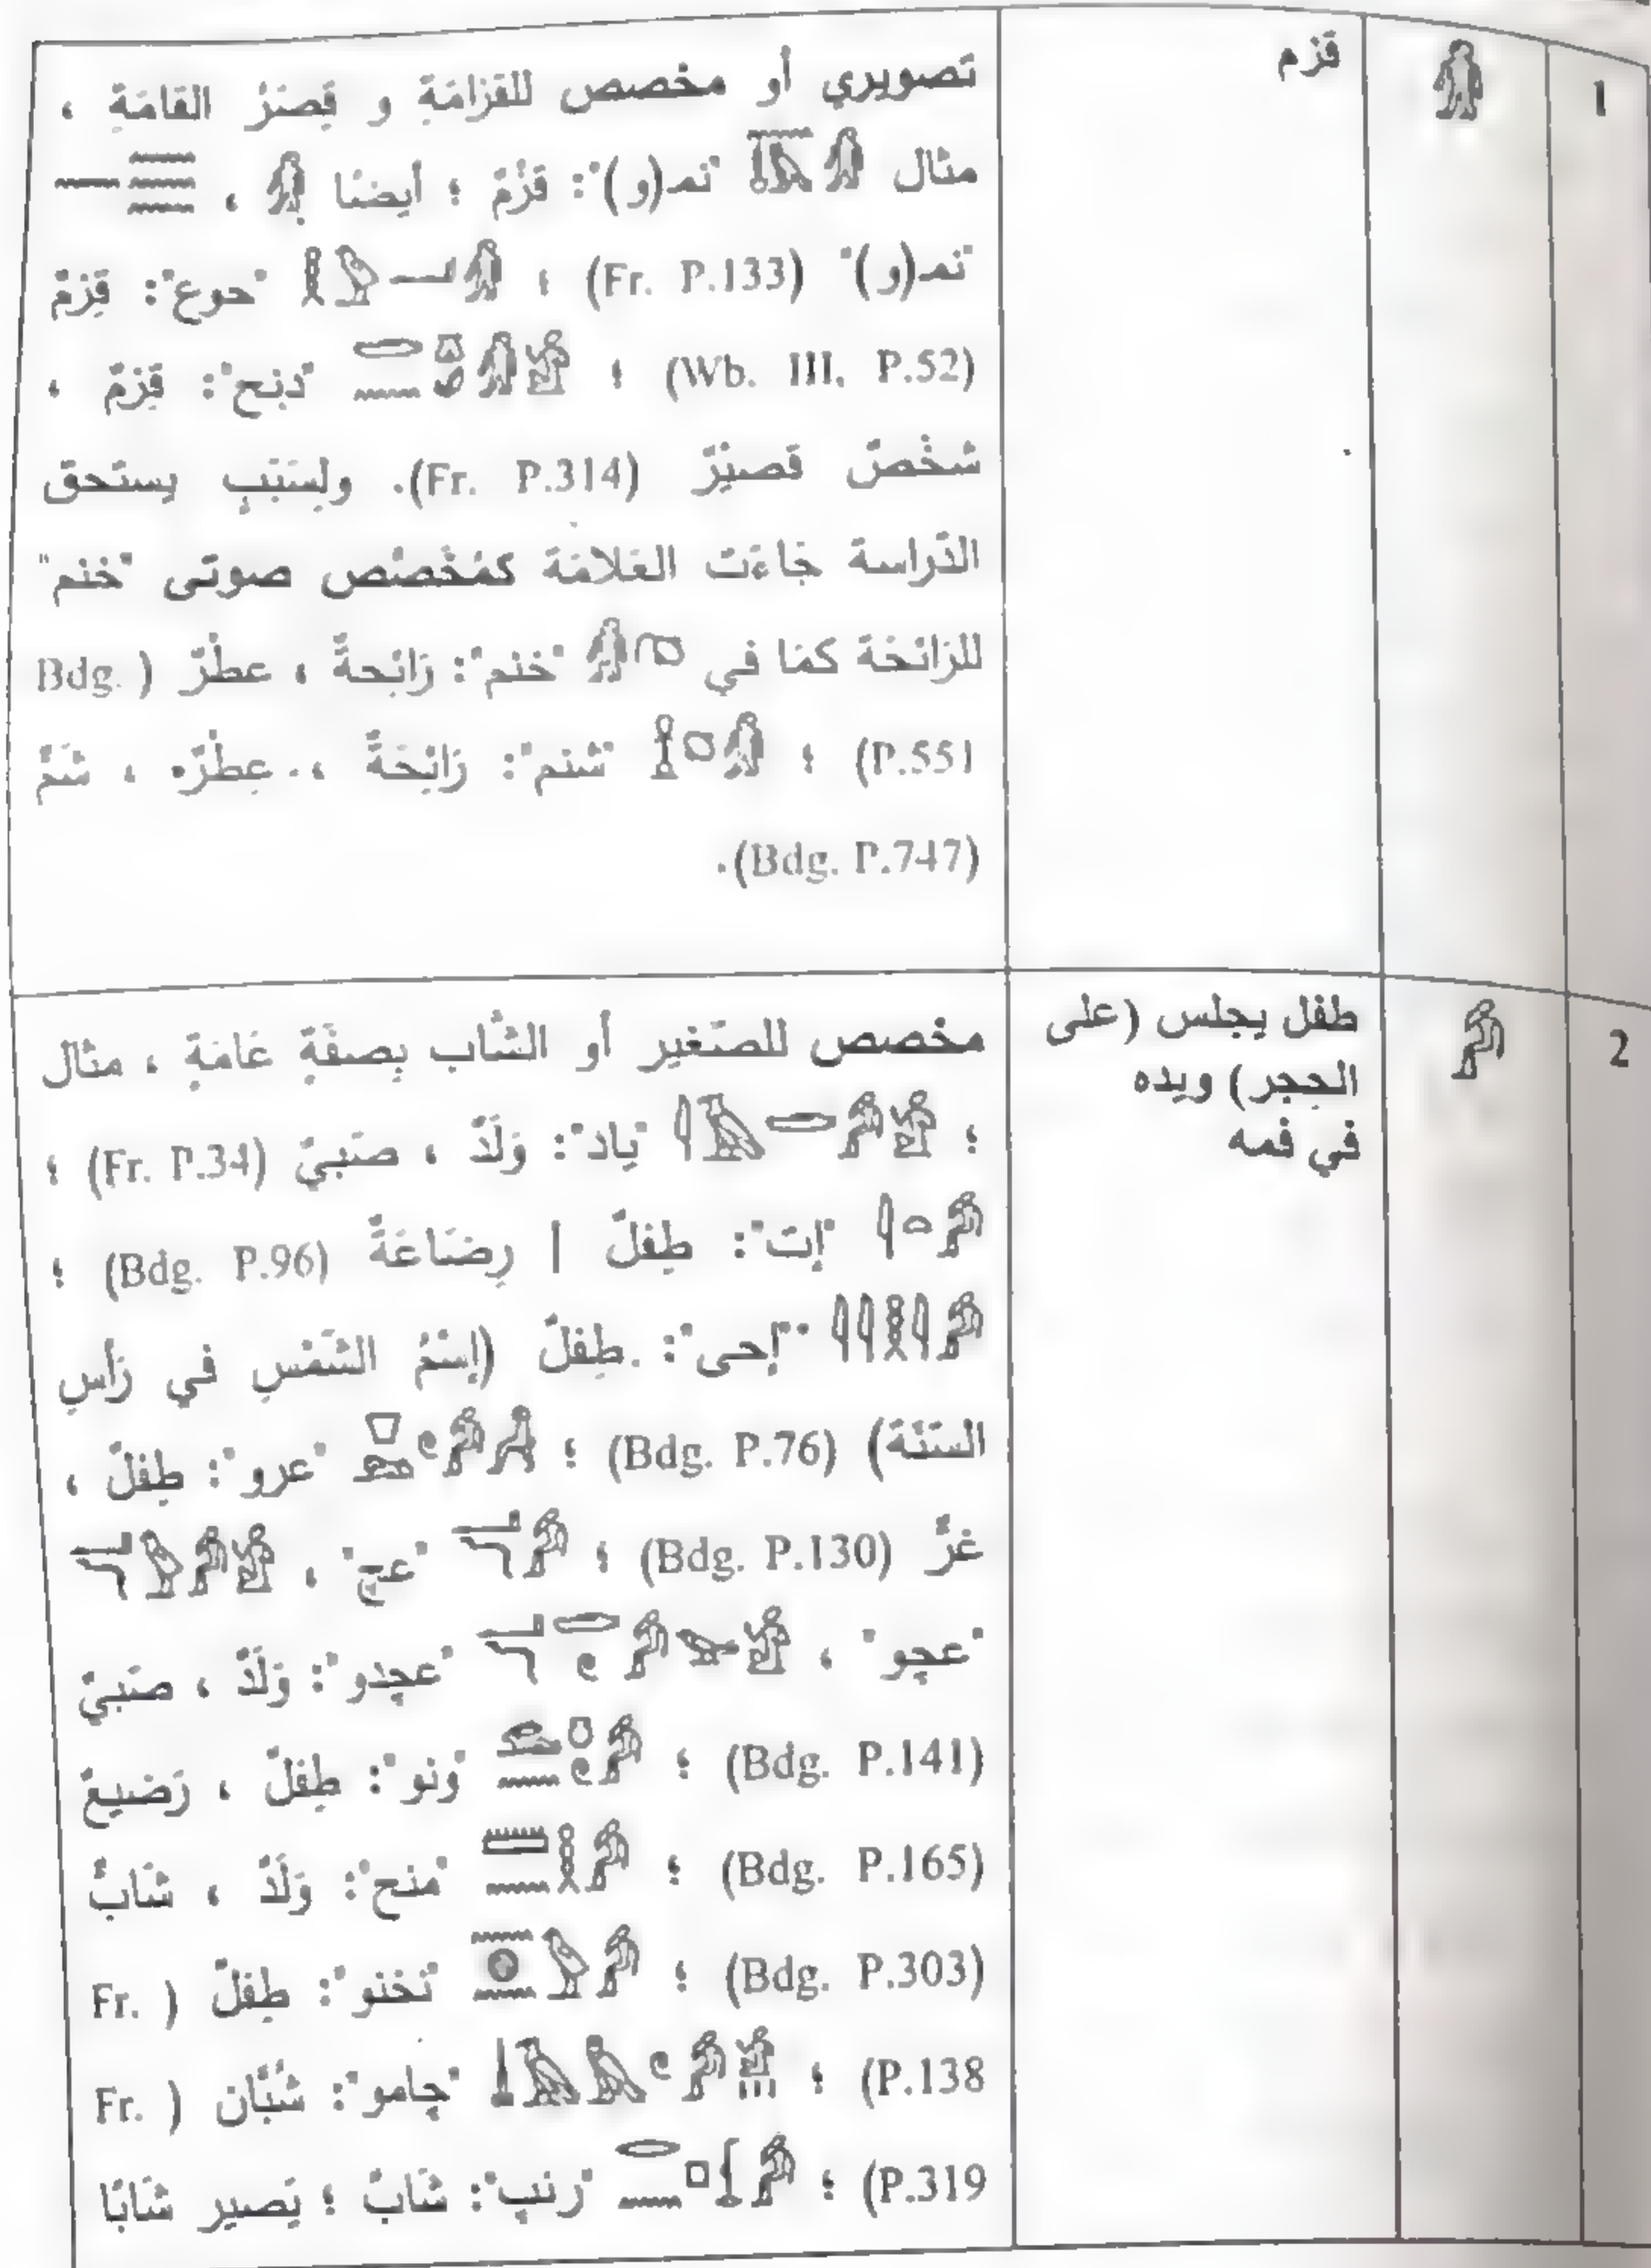 1
قزم
تصويري أو مخصص للقزامَةِ و قِصَرُ القامَةِ ،
مثال "نمـ(و)": قَزْمٌ ؛ أيضنا ،
"نمـ(و)" (Fr. P.133) ؛ "حوع": قِزمٌ
(Wb. III. P.52) ؛ "دنج": قِزمٌ ،
شخْصٌ قصيْرٌ (Fr. P.314). ولِسَبَبٍ يستحق
الدّراسة جَاءَت العَلامَة كمُخَصّص صوتى "خنم"
للرَائحَة كمَا في "خنم": رَائحةٌ ، عطْرٌ ( Bdg.
P.551) ؛ "شنم": رَائِحَةٌ ، عِطْرٌ ، شَمٌ
(Bdg. P.747).
2
طفل يجلس (على
الحجر) ويده
في فمه
مخصص للصّغير أو الشّاب بِصفَةٍ عَامَةٍ ، مثال
؛ "ياد": وَلَدٌ ، صَبيٌ (Fr. P.34) ؛
"إت": طِفلٌ | رِضَاعَةٌ (Bdg. P.96) ؛
"إحى": طِفلٌ (إسْمُ الشَمْسِ في رَأسِ
السّنَة) (Bdg. P.76) ؛ "عرو": طِفلٌ ،
غرٌّ (Bdg. P.130) ؛ "عچ" ،
"عچو" ، "عچدو": وَلَدٌ ، صَبيٌ
(Bdg. P.141) ؛ "ونو": طِفلٌ ، رَضيعٌ
(Bdg. P.165) ؛ "منح": وَلَدٌ ، شَابٌّ
(Bdg. P.303) ؛ "نخنو": طِفلٌ ( Fr.
P.138) ؛ "چامو": شُبَّان ( Fr.
P.319) ؛ "رنپ": شَابٌ ؛ يَصير شَابًا